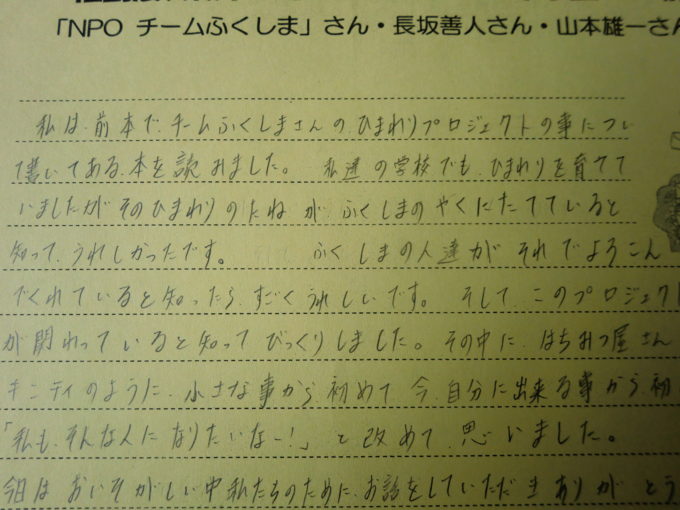 「NPO チームふくしま」さん・長坂善人さん・山本雄一さん
私は、前本で、チームふくしまさんの、ひまわりプロジェクトの事につい
て書いてある、本を読みました。 私達の学校でも、ひまわりを育てて
いましたがそのひまわりのたねが、ふくしまのやくにたてていると
知って、うれしかったです。 ふくしまの人達がそれでよろこん
でくれていると知ったら、すごくうれしいです。 そして、このプロジェクト
が関わっていると知ってびっくりしました。その中に、はちみつ屋さん
のように、小さな事から、初めて、今、自分に出来る事から、初
「私も、そんな人に、なりたいなー!」と改めて、思いました。
今日は、おいそがしい中私たちのために、お話をしていただきありがとう